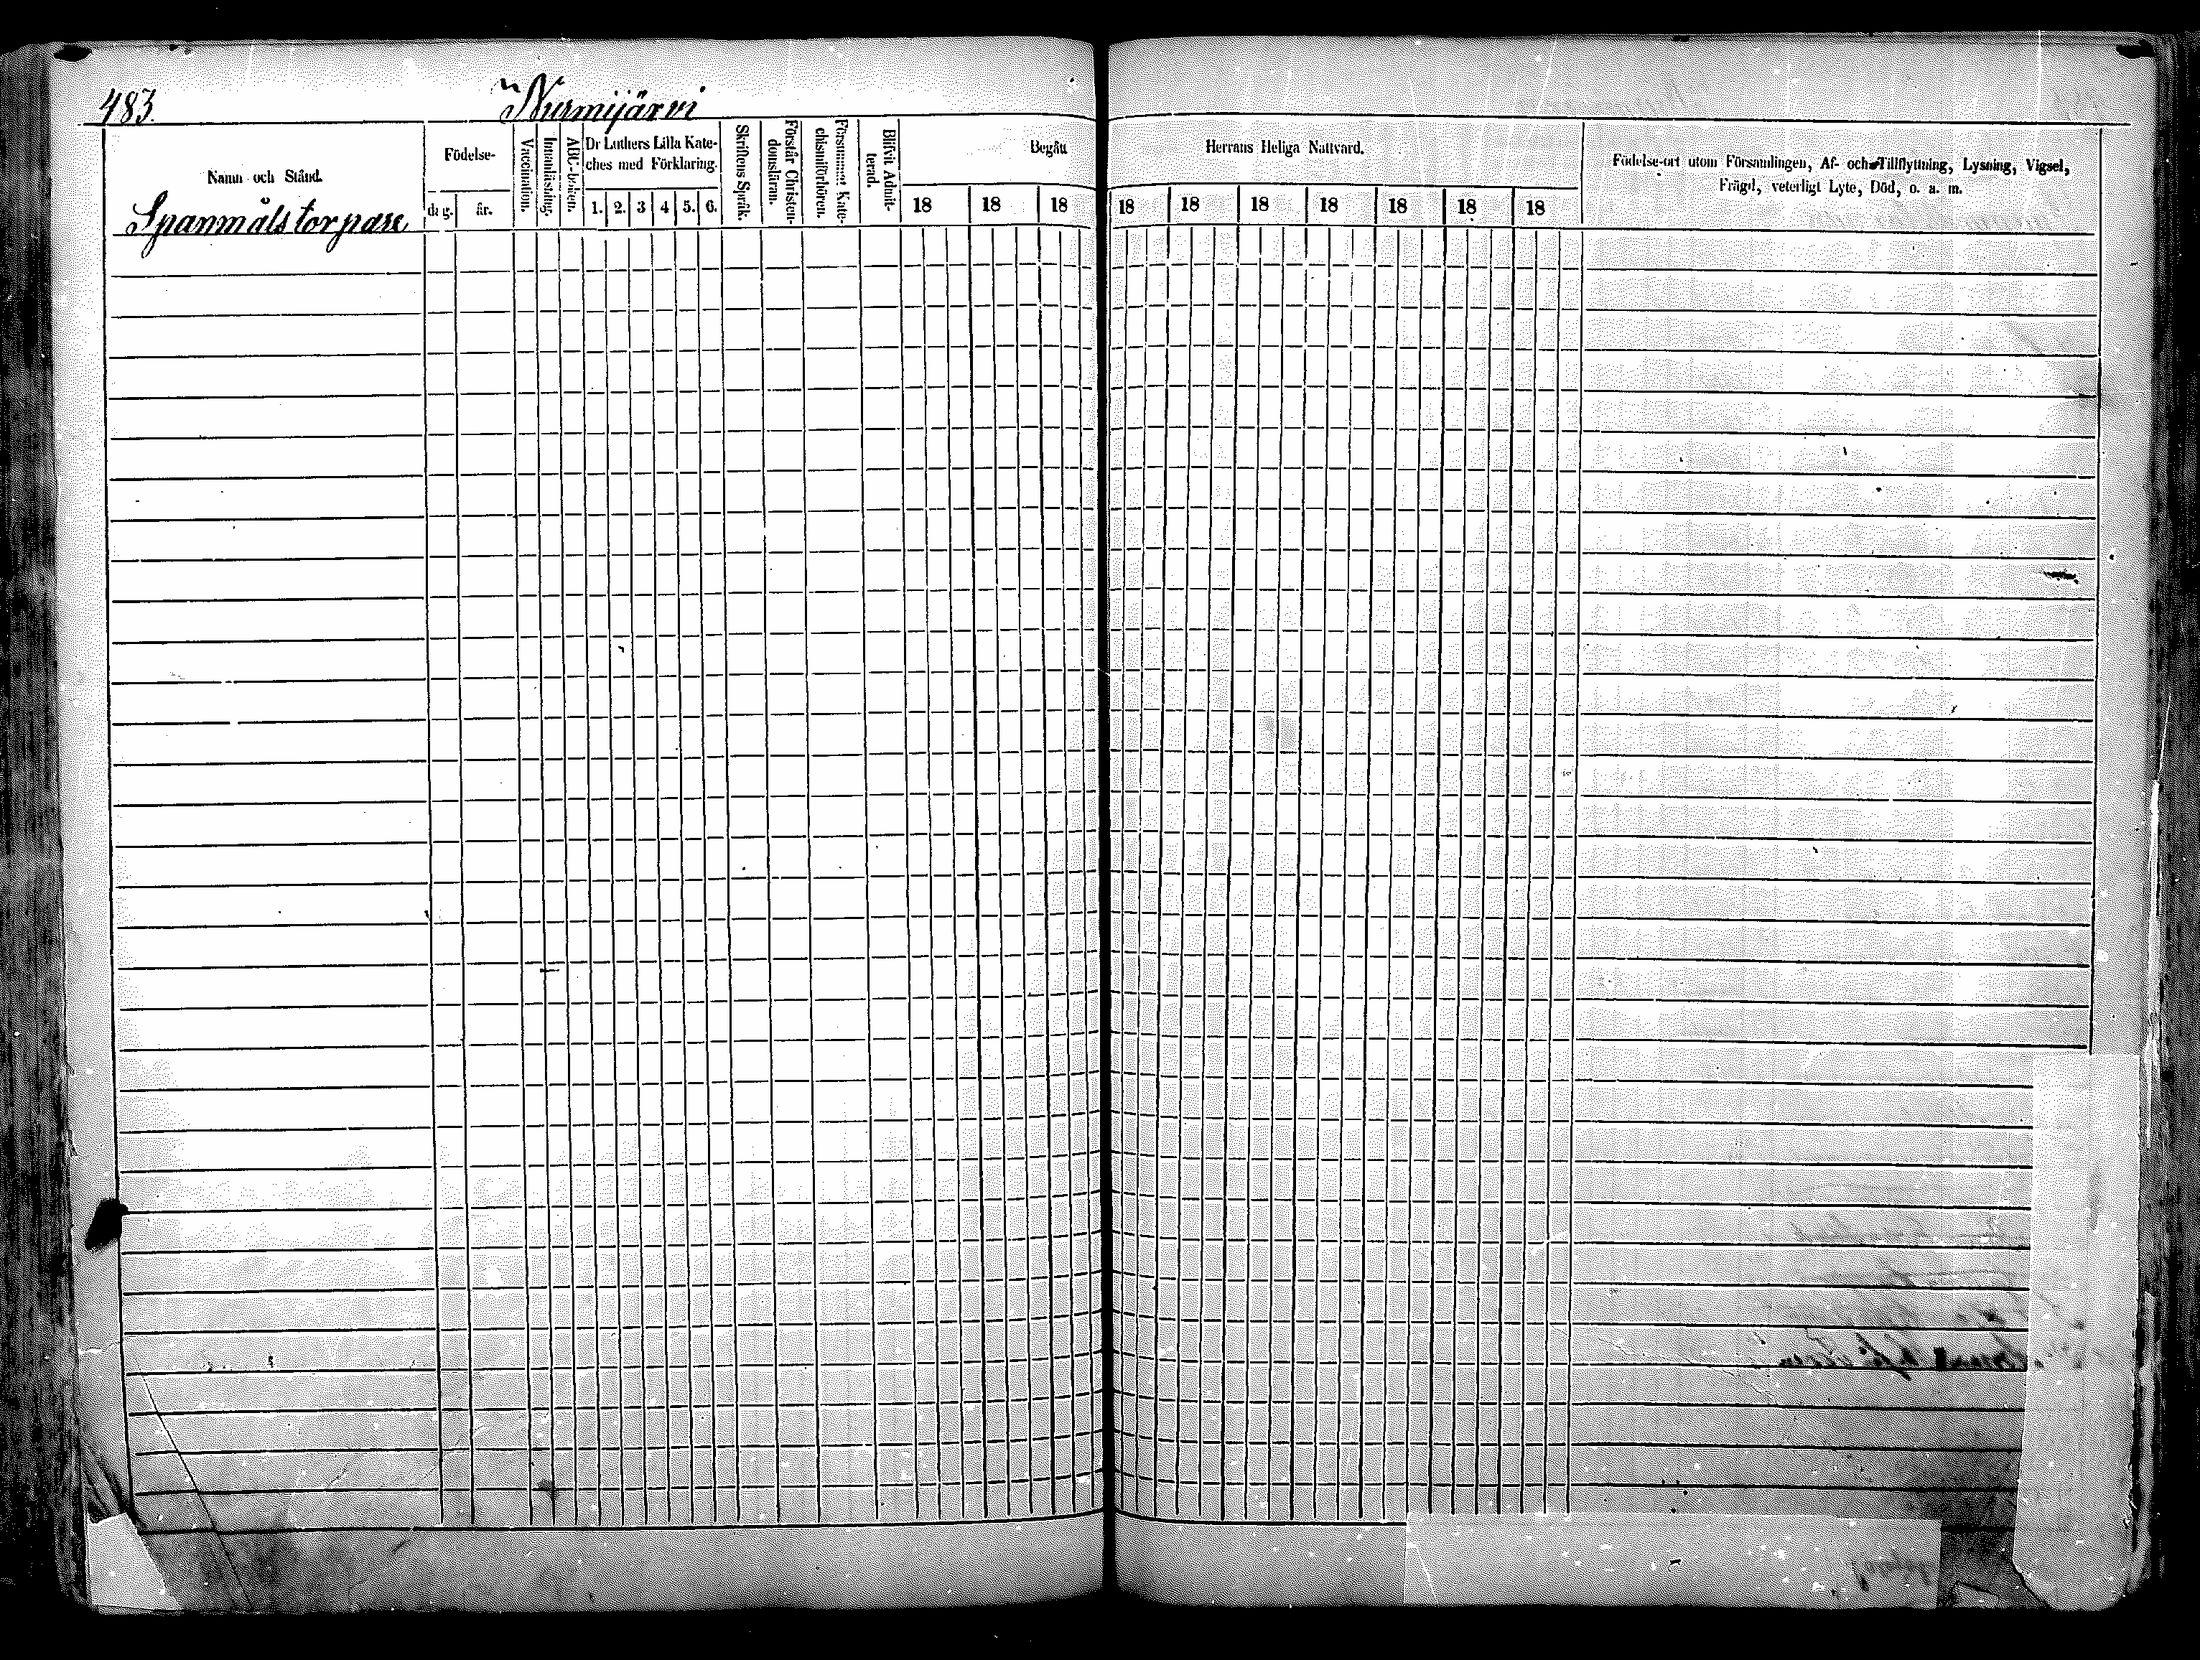 483.
Nurmijärvi
Namn och Stånd.
Spanmålstorpare
Födelse-
dag. år.
Vaccination.
Innanläsning.
ABC-boken.
Dr Luthers Lilla Kate-
ches med Förklaring.
1. 2. 3 4 5. 6.
Skriftens Språk.
Förstår Christen-
domsläran.
Försummat Kate-
chismiförhören.
Blifvit Admit-
terad.
Begått Herrans Heliga Nattvard.
18 18 18 18 18 18 18 18 18 18
Födelse-ort utom Församlingen, Af- och Tillflyttning, Lysning, Vigsel,
Frägd, veterligt Lyte, Död, o. a. m.